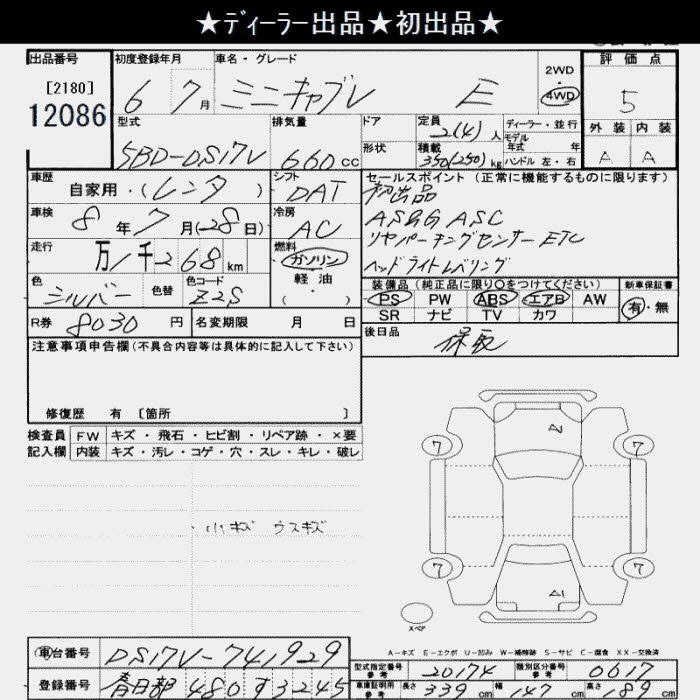 ★ディーラー出品★初出品★
出品番号 初度登録年月 車名・グレード 2WD 評価点
[2180] 6 7月 ミニキャブV E 4WD 5
12086
型式 排気量 ドア 定員 2(4)人 ディーラー・並行 外装 内装
5BD-DS17V 660cc 形状 積載 350(250)kg モデル年式 年 A A
ハンドル 左・右
車歴 シフト セールスポイント (正常に機能するものに限ります)
自家用・(レンタ) DAT 初出品
車検 冷房 AS&G ASC
8年7月(28日) AC リヤパーキングセンサー ETC
走行 燃料 ヘッドライトレベリング
万1千268km ガソリン
軽油
(・)
色 色替 色コード 装備品 (純正品に限り○をつけてください) 新車保証書
シルバー Z2S PS PW ABS エアB AW 有・無
SR ナビ TV カワ
R券 8030円 名変期限 月 日 後日品
保取
注意事項申告欄 (不具合内容等は具体的に記入して下さい)
修復歴 有 [箇所 ]
検査員 FW キズ・飛石・ヒビ割・リペア跡・×要
記入欄 内装 キズ・汚レ・コゲ・穴・スレ・キレ・破レ
・小キズ ウスキズ
7 7
7 7
A1
スペア
A-キズ E-エクボ U-凹み W-補修跡 S-サビ C-腐食 XX-交換済
車台番号 DS17V-741929
型式指定番号 参考 20174 類別区分番号 参考 0617
登録番号 春日部 480 す 3245
車庫証明用 参考 長さ 339cm 幅 147cm 高さ 189cm